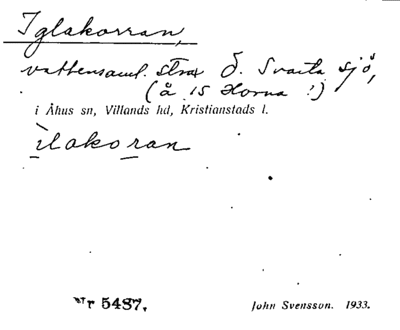 Iglakorran,
vattensaml. strax Ö. Svarta sjö,
(å 15 Horna !)
i Åhus sn, Villands hd, Kristianstads l.
ìlakoran
Nr 5487.
John Svensson. 1933.